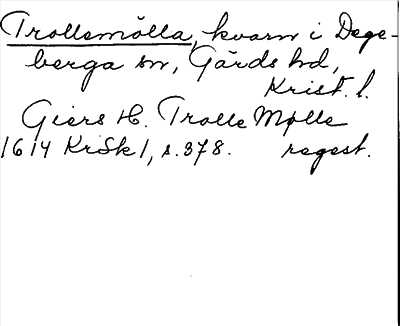 Trollsmölla, kvarn i Dege-
berga sn, Gärds hd,
Krist. l.
Giers H. Trolle Mølle
1614 KrSk 1, s. 378. regest.